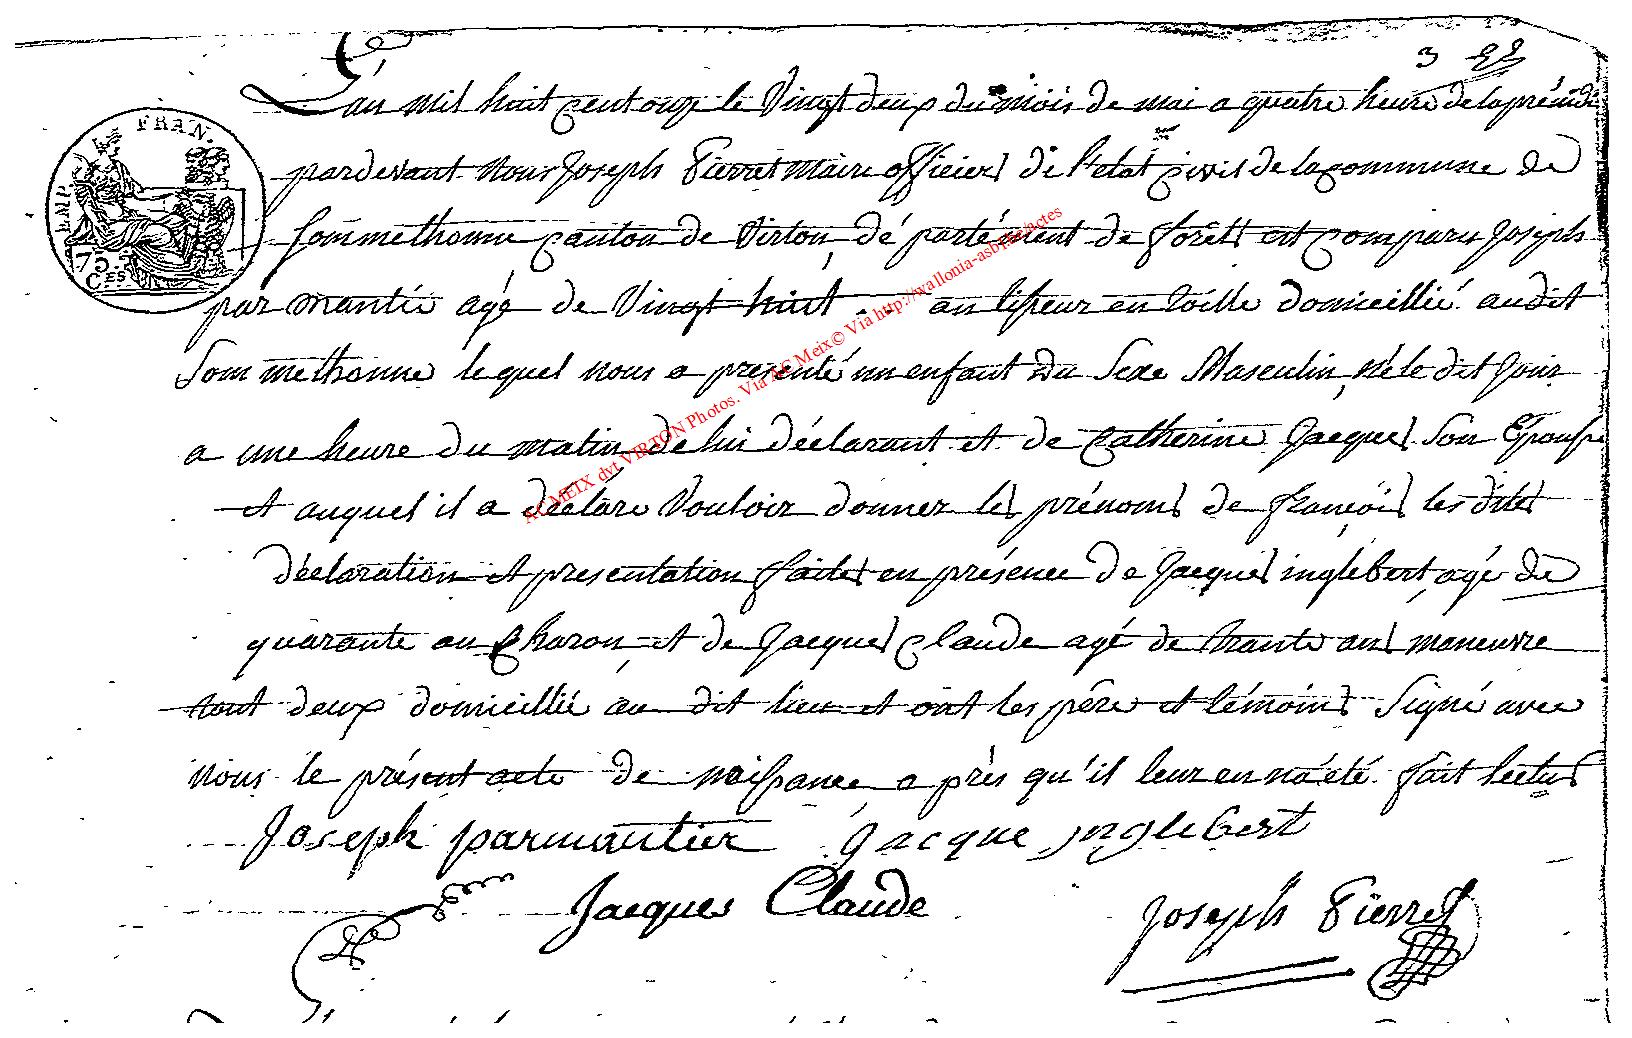 3 22
L'an mil huit cent onze le Vingt deux du mois de mai a quatre heure de la prémidi
pardevant nous Joseph Pierret Maire officiers de l'etat civil de la commune de
FRAN.
EMP.
75.
CES
Sommethonne canton de Virton, dé partément de forêts est comparu Joseph
par mantié agé de Vingt huit an tisseur en toille domicillié audit
Sommethonne lequel nous a presenté un enfant du Sexe Masculin, né le dit jour
a une heure du matin de lui déclarant et de Catherine Jacques Son Epouse
et auquel il a déclare Vouloir donner les prénoms de françois les dites
déclaration et presentation faites en présence de Jacques inglebert, agé de
quarante an Charon, et de Jacques Claude agé de trante ans maneuvre
tout deux domicillié au dit lieu et ont les père et témoins Signé avec
nous le présent acte de naissance a près qu'il leur en na été fait lectus
Joseph parmantier Jacque inglebert
Jacques Claude Joseph Pierret
AC MEIX dvt VIRTON Photos. Via AC Meix© Via http://wallonia-asbl.be/actes